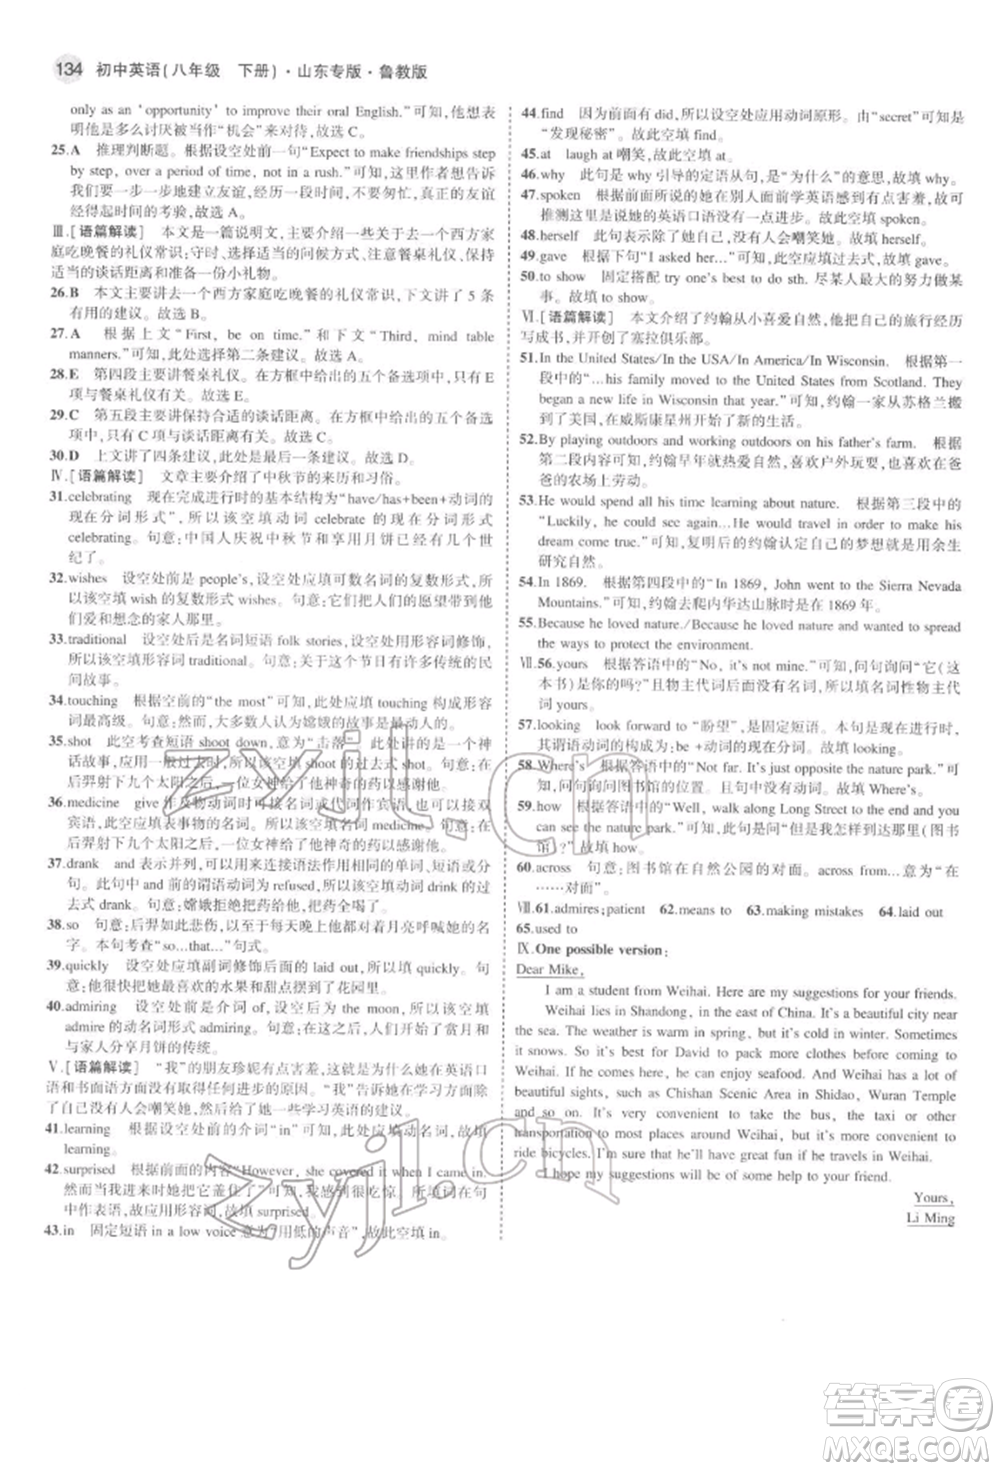 134 初中英语(八年级 下册)·山东专版·鲁教版
only as an 'opportunity' to improve their oral English."可知,他想表
明他是多么讨厌被当作“机会”来对待,故选 C。
25.A 推理判断题。根据设空处前一句“Expect to make friendships step
by step, over a period of time, not in a rush."可知,作者想告诉
我们要和人进一步地建立友谊,经得一段时间,不可太快。真正的友谊
是经得起时间的考验,故选 A。
Ⅲ.[语篇解读] 本文是一篇说明文,主要介绍一些关于去一个西方家
庭吃晚餐的礼仪常识:守时、选择适当的问候方式、注意餐桌礼仪、保持
适当的谈话距离和送一份小礼物。
26.B 本文主要讲去一个西方家庭吃晚餐的礼仪常识,下文讲了 5 条
有用的建议。故选 B。
27.A 根据上文“First, be on time."和下文“Third, mind table
manners."可知,此处选择第二条建议。故选 A。
28.E 第四段主要讲餐桌礼仪。在方框中给出的五个备选项中,只有 E
项与餐桌礼仪有关。故选 E。
29.C 第五段主要讲保持合适的谈话距离。在方框中给出的五个备选
项中,只有 C 项与谈话距离有关。故选 C。
30.D 上文讲了四条建议,此处选择送小礼物的建议。故选 D。
Ⅳ.[语篇解读] 文章主要介绍了中秋节的来历和习俗。
31.celebrating 现在完成进行时的基本结构为“have/has+been+动词的
现在分词形式”,所以该空填动词 celebrate 的现在分词形式
celebrating。句意:中国人庆祝中秋节和享用月饼已经几个世
纪了。
32.wishes 设空处前是 people's,设空处应填可数名词的复数形式,
所以该空填 wish 的复数形式 wishes。句意:它们承载着人们对他们
爱和想念的家人的祝愿。
33.traditional 设空处后是名词短语 folk stories,设空处用形容词修饰,
所以该空填形容词 traditional。句意:关于这个节日有许多传统的民
间故事。
34.touching 根据前面的“the most”可知,此处应填 touching 构成形容
词最高级。句意:然而,大多数人认为嫦娥的故事是最动人的。
35.shot 此空考查短语 shoot down,意为“击落”。此处讲的是一个神
话故事,应用一般过去时。所以该空填动词的过去式 shot。句意:
后羿射下九个太阳之后,一位女神给了他神奇的药以感谢他。
36.medicine give 作及物动词时可以直接接名词或代词作宾语或接双
宾语,此空应填表事物的名词。所以应填名词 medicine。句意:在后
羿射下九个太阳之后,一位女神给了他神奇的药以感谢他。
37.drank and 表示并列,可以用来连接语法作用相同的词、短语或分
句。此句中 and 前的谓语动词是 refused,所以此处应填动词 drink 的
过去式 drank。句意:嫦娥拒绝把药给他,并把它全喝了。
38.so 句意:后羿如此悲伤,以至于每天晚上他都对着月亮呼喊她的名
字。本句考查“so...that...”句式。
39.quickly 设空处应填副词修饰后面的 laid out,所以该空填 quickly。
句意:他迅速把她喜欢的水果和甜点摆到了花园里。
40.admiring 设空处前是介词 of,设空处后是 the moon,所以该空填
admire 的动名词形式 admiring。句意:在这之后,人们开始有了赏月
和与家人分享月饼的传统。
Ⅴ.[语篇解读] “我”的朋友珍妮有点害羞,这被认为是她在英语口
语和书面语方面没有取得任何进步的原因。“我”告诉她在学习方面不
要担心别人会嘲笑她,并给了她一些学习英语的建议。
41.learning 根据设空处前的介词“in”可知,此空填动名词形式
learning。
42.surprised 根据后面的内容“However, she covered it when she saw
me(此时她把它盖住了)”可知,“我”看到这很吃惊,根据此句
中作表语,故应用形容词,故填 surprised。
43.in 固定短语 in a low voice 意为“用低的声音”,故此空填 in。
44.find 因为前面有 did,所以设空处应用动词原形。由“secret”可知是
“发现秘密”。故此空填 find。
45.at laugh at 嘲笑,故此空填 at。
46.why 此句是 why 引导的定语从句,是“为什么”的意思,故填 why。
47.spoken 根据前面所说的她在别人面前学英语感到有点害羞,故可
推测这里是说她的英语口语没有一点进步。故此空填 spoken。
48.herself 此句表示除了她自己,没有人会嘲笑她。故填 herself。
49.gave 根据下句“I asked her..."可知,此空应填过去式,故填 gave。
50.to show 固定搭配 try one's best to do sth. 尽某人最大的努力做某
事。故填 to show。
Ⅵ.[语篇解读] 本文介绍了约翰从小喜爱自然,他把自己的旅行经历
写成书,并创办了塞拉俱乐部。
51.In the United States/In the USA/In America/In Wisconsin. 根据第一
段中的“...his family moved to the United States from Scotland. They
began a new life in Wisconsin that year"可知,约翰一家从苏格兰搬
到了美国,在威斯康星州开始了新的生活。
52.By playing outdoors and working outdoors on his father's farm. 根据
第二段内容可知,约翰早年就热爱自然,喜欢户外玩耍,以及在爸
爸的农场上劳动。
53.He would spend all his time learning about nature. 根据第三段中的
“Luckily, he could see again...He would travel in order to make his
dream come true."可知,复明后的约翰决定自己的梦想就是用余生
研究自然。
54.In 1869. 根据第四段中的“In 1869, John went to the Sierra Nevada
Mountains."可知,约翰去爬内华达山脉时是在 1869 年。
55.Because he loved nature./Because he loved nature and wanted to spread
the ways to protect the environment.
Ⅶ.56.yours 根据答语中的“No, it's not mine."可知,问句询问“它(这
本书)是你的吗?”且物主代词后面没有名词,所以填名词性物主代
词 yours。
57.looking look forward to “盼望”,是固定短语。本句是现在进行时,
其谓语动词的构成为:be +动词的现在分词形式,故填 looking。
58.Where's 根据答语中的“Not far. It's across from the nature park."可
知,此处询问图书馆的位置。且句中没有动词,故填 Where's。
59.how 根据答语中的“Well, walk along Long Street to the end and you
can see the nature park."可知,此处是问“但是我怎样到那儿(图书
馆)?”,故填 how。
60.across 句意:图书馆在自然公园的对面。across from...意为“在
……对面”。
Ⅷ.61.admires; patient 62.means to 63.making mistakes 64.laid out
65.used to
Ⅸ. One possible version:
Dear Mike,
I am a student from Weihai. Here are my suggestions for your friends.
Weihai lies in Shandong, in the east of China. It's a beautiful city near
the sea. The weather is warm in spring, but it's cold in winter. Sometimes
it snows. So it's best for David to pack some warm clothes. Arriving in
Weihai, he can enjoy seafood. And Weihai has a lot of
beautiful sights, such as Chishan Scenic Area in Shidao, Wuran Temple
and so on. It's very convenient to take the bus, the taxi or other
transportation to most places around Weihai, but if he likes
bicycle riding, I'm sure that he'll have great fun here in Weihai.
I hope my suggestions will be of some help to your friend.
Yours,
Li Ming
zyjl.cn
zyjl.cn
答案圈
MXQE.COM